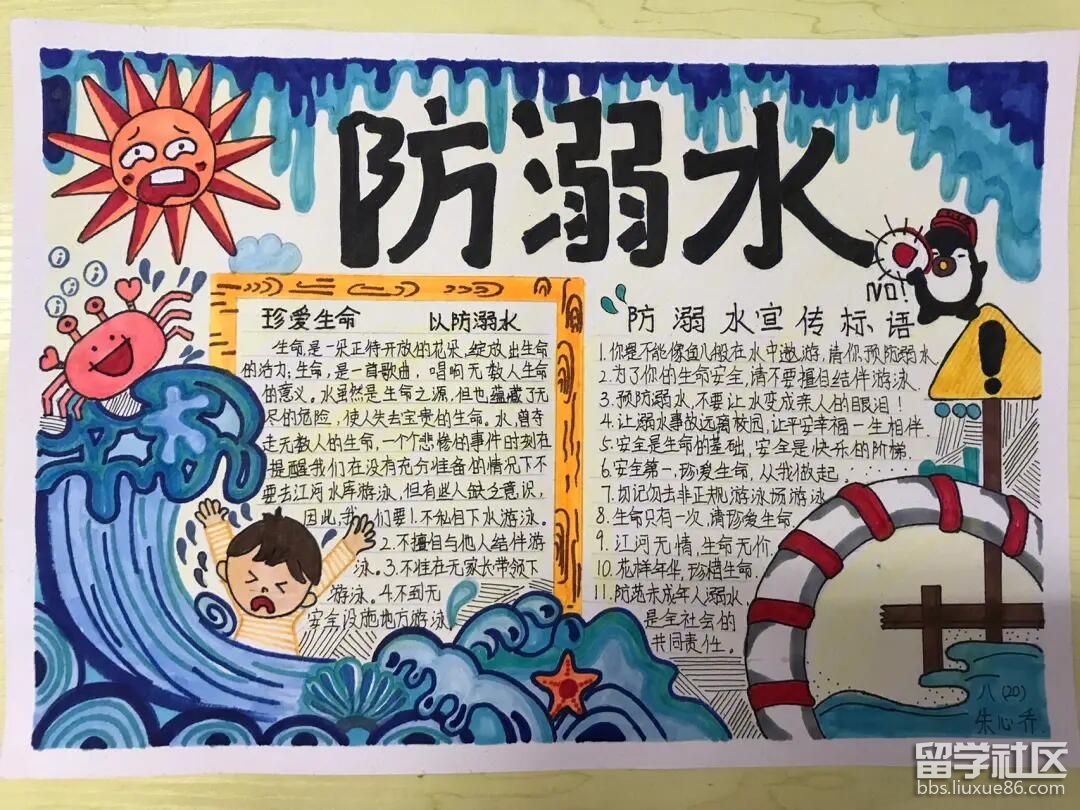 防溺水
NO!
珍爱生命 以防溺水
生命,是一朵正待开放的花朵,绽放出生命
的活力;生命,是一首歌曲,唱响无数人生命
的意义。水虽然是生命之源,但也蕴藏了无
尽的危险,使人失去宝贵的生命。水,曾夺
走无数人的生命,一个个悲惨的事件时刻在
提醒我们在没有充分准备的情况下不
要去江河水库游泳,但有些人缺乏意识,
因此,我们要1.不私自下水游泳。
2.不擅自与他人结伴游
泳。3.不准在无家长带领下
游泳。4.不到无
安全设施地方游泳。
防溺水宣传标语
1.你想不能像鱼儿般在水中遨游,请你预防溺水.
2.为了你的生命安全,请不要擅自结伴游泳.
3.预防溺水,不要让水变成亲人的眼泪!
4.让溺水事故远离校园,让平安幸福一生相伴.
5.安全是生命的基础,安全是快乐的阶梯.
6.安全第一,珍爱生命,从我做起.
7.切记勿去非正规游泳场游泳.
8.生命只有一次,请珍爱生命.
9.江河无情,生命无价.
10.花样年华,珍惜生命.
11.防范未成年人溺水,
是全社会的
共同责任。
八(20)
朱心乔
留学社区
bbs.liuxue86.com